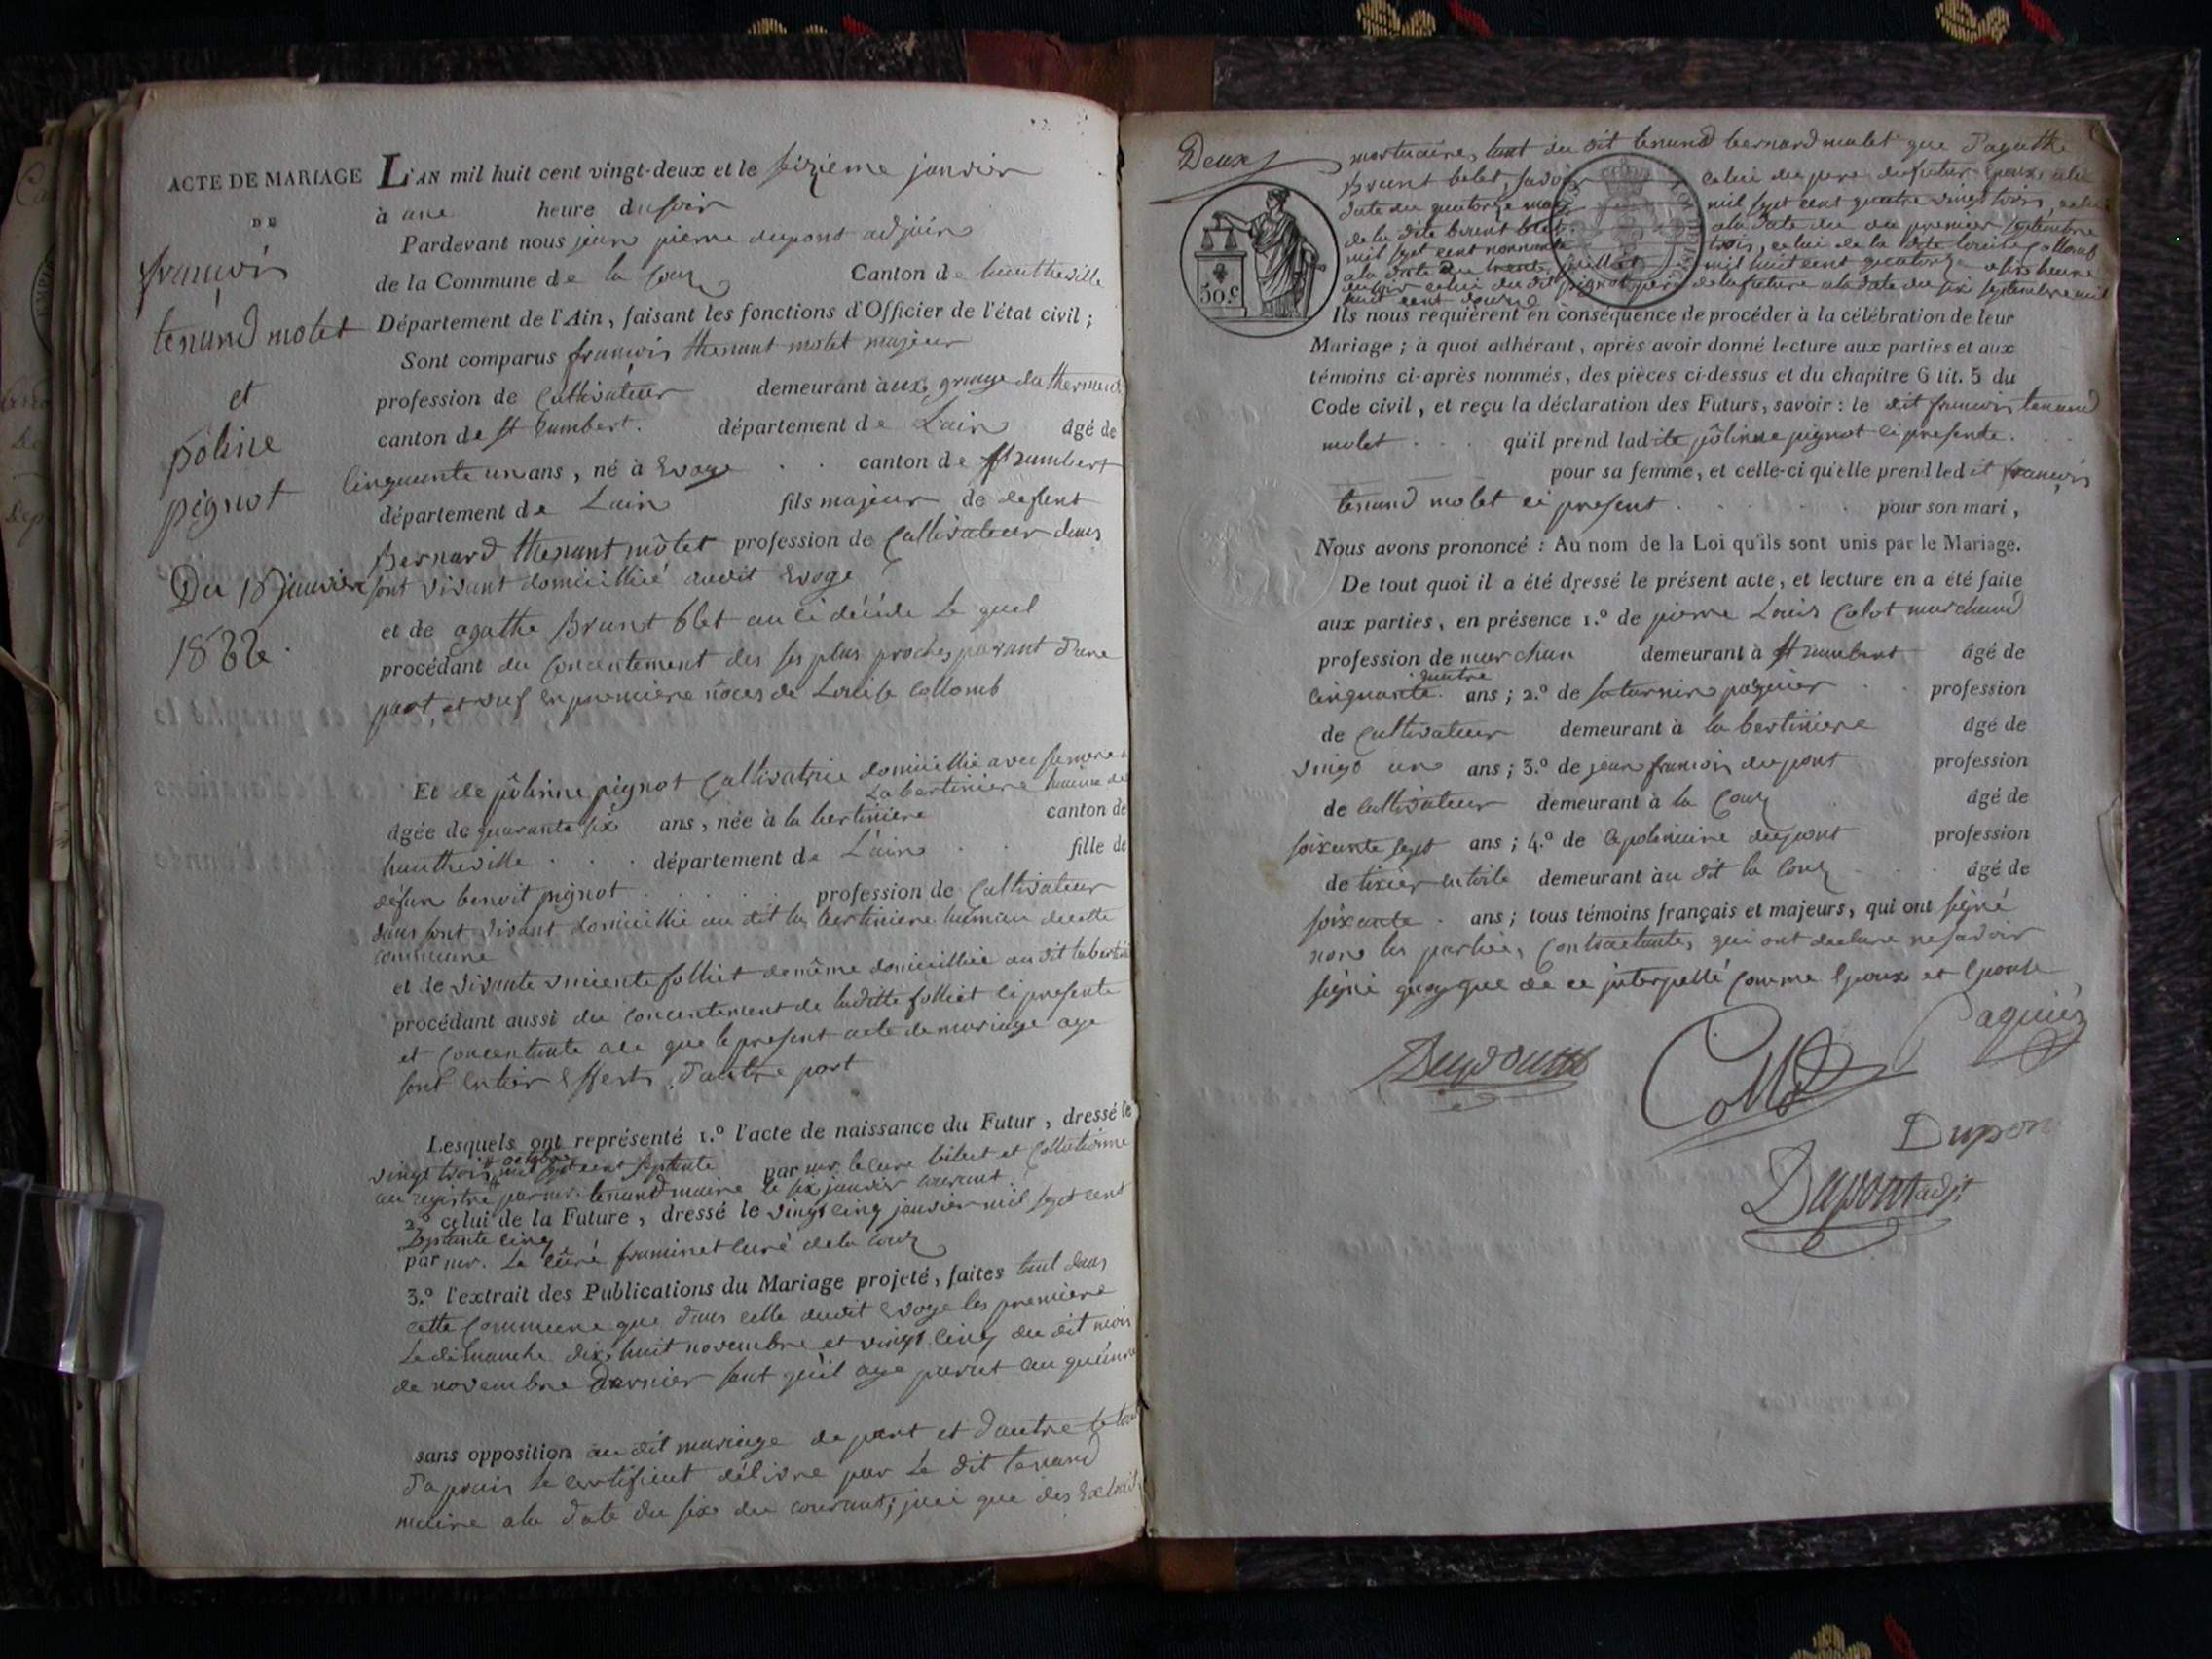 ACTE DE MARIAGE
DE
françois
tenand molet
et
pôline
pignot
Du 16 janvier
1822.
L'AN mil huit cent vingt-deux et le seizieme janvier
à une heure du soir
Pardevant nous jean pierre dupont adjoin
de la Commune de la Couz Canton de hautheville
Département de l'Ain, faisant les fonctions d'Officier de l'état civil ;
Sont comparus françois thenant molet majeur
profession de Cultivateur demeurant aux grange du
canton de st Rambert. département de Lain âgé de
Cinquante un ans, né à Evoge canton de st rambert
département de Lain fils majeur de defunt
Bernard thenant môlet profession de Cultivateur dans
sont vivant domicillié audit Evoge
et de agathe Brunt blet au ci décédé Le quel
procédant du Concentement des ses plus proches parant d'une
part, et vuf en premiere nôces de Louise Collomb
Et de pôlinne pignot Cultivatrice domicillié avec sa mere a
La bertiniere hameau de
âgée de quarante six ans, née à la bertiniere canton de
hautheville département de L'ain fille de
défun benoit pignot profession de Cultivateur
dans sont vivant domicillié au dit la bertiniere hamau decette
commune
et de vivante folliet de même domicilliée au dit
procédant aussi du concentement de laditte folliet ci presente
et concentante a ce que le present acte de mariage aye
sont entier effects, d'autre part
Lesquels ont représenté 1.º l'acte de naissance du Futur, dressé le
vingt trois octobre mil sept cent septante par mr. le cure et Collationné
au registre par mr. tenand maire le six janvier courant.
2.º celui de la Future, dressé le vingt cinq janvier mil sept cent
septante cinq
par mr. Le cûré curé dela Couz
3.º l'extrait des Publications du Mariage projeté, faites tant dans
cette Commune que dans celle dudit Evoge les premiere
Le dimanche dix huit novembre et vingt cinq du dit mois
de novembre dernier sant qu'il aye parut
sans opposition au dit mariage de part et d'autre le tout
d'aprais le certificat délivré par Le dit tenand
maire ala date du six du courant, que des Extrait
Deux
mortuaire, tant du dit tenand bernard molet que d'agathe
Brunt belet, savoir celui du pere du futur epoux ala
date du quatorze mil sept cent quatre vingt trois, celui
de la dite brunt blet ala date du premier septembre
mil sept cent nonnante trois, celui de la dite Louise Collomb
ala date du trente juillet mil huit cent quatorze
celui du dit pignot pere dela future ala date du six septembre mil
huit cent douze
50.C
Ils nous requièrent en conséquence de procéder à la célébration de leur
Mariage ; à quoi adhérant, après avoir donné lecture aux parties et aux
témoins ci-après nommés, des pièces ci-dessus et du chapitre 6 tit. 5 du
Code civil, et reçu la déclaration des Futurs, savoir : le dit francois tenand
molet qu'il prend ladite pôlinne pignot ci presente.
pour sa femme, et celle-ci qu'elle prend led it françois
tenand molet ci present pour son mari,
Nous avons prononcé : Au nom de la Loi qu'ils sont unis par le Mariage.
De tout quoi il a été dressé le présent acte, et lecture en a été faite
aux parties, en présence 1.º de pierre Louis Colot marchand
profession de marchan demeurant à st rambert âgé de
cinquante quatre ans ; 2.º de saturnin paquier profession
de Cultivateur demeurant à la bertiniere âgé de
vingt un ans ; 3.º de jean francois dupont profession
de cultivateur demeurant à la Couz âgé de
soixante sept ans ; 4.º de apolinaire dupont profession
de tixier en toile demeurant àu dit la Couz âgé de
soixante ans ; tous témoins français et majeurs, qui ont signé
non les parties, Contractantes, qui ont declare ne savoir
signé quoyque de ce jnterpellé Comme Epoux et Epouse
Paquier
Dupon
Dupont adjt